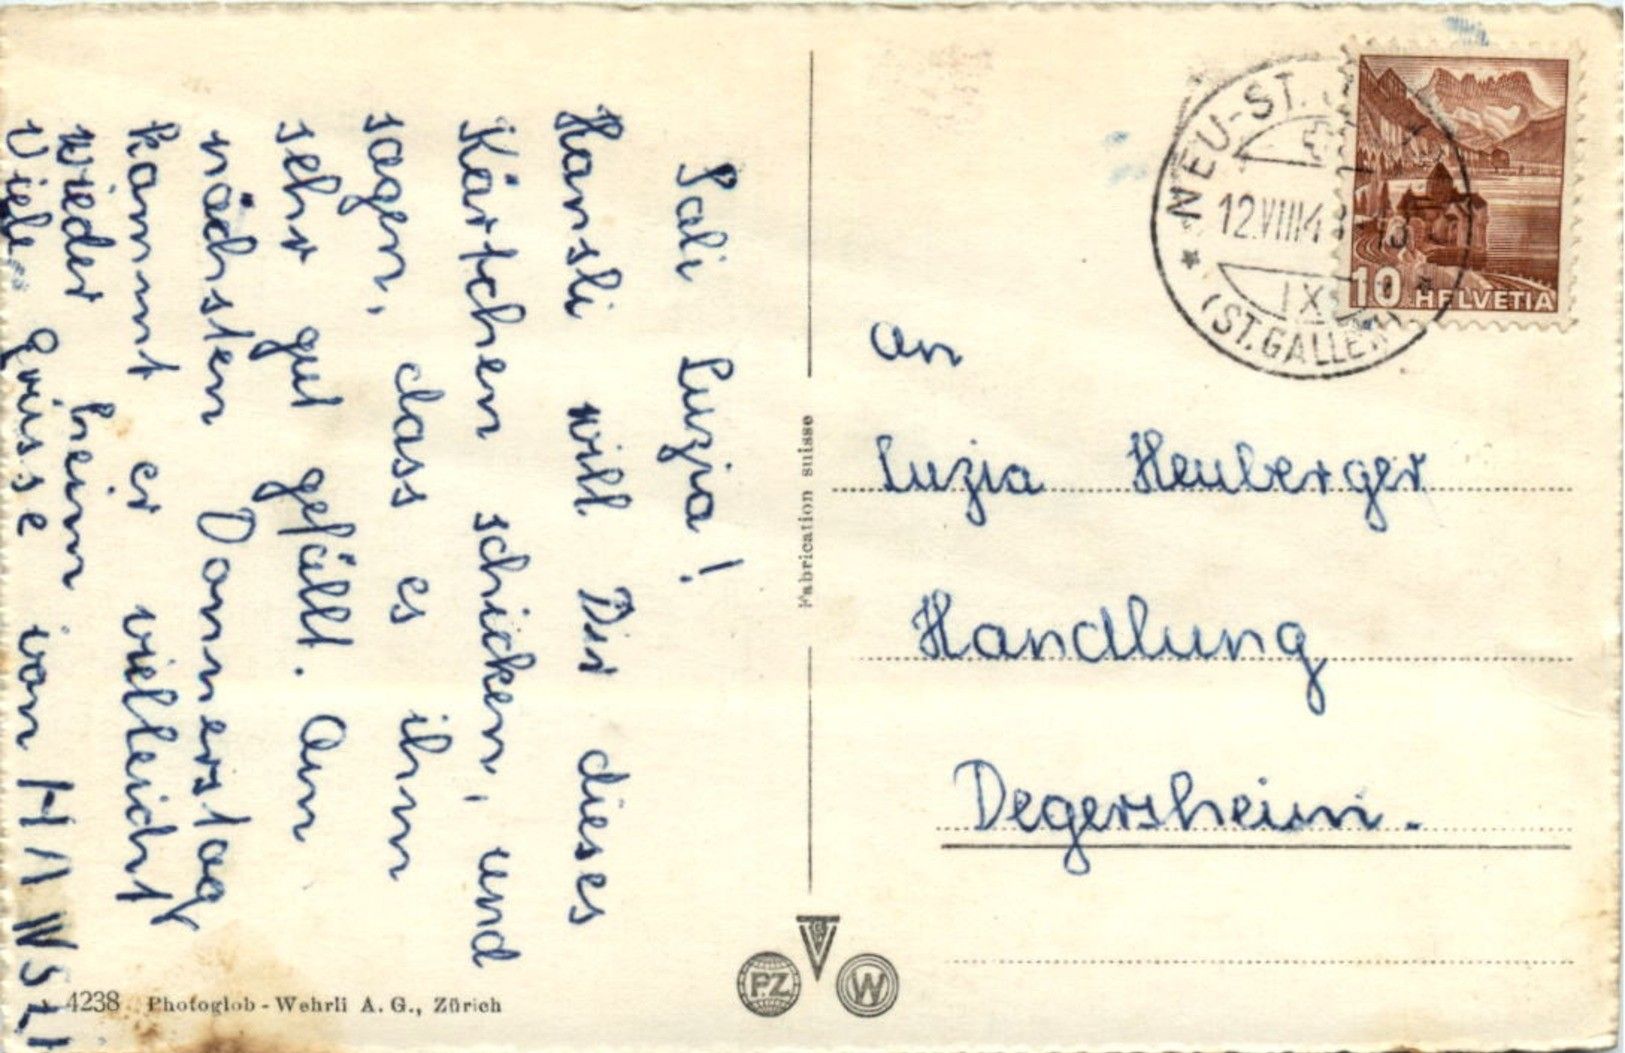 Sali Luzia!
Hansli will Dir dieses
Kärtchen schicken, und
sagen, dass es ihm
sehr gut gefällt. Am
nächsten Donnerstag
kommt er vielleicht
wieder heim
Viele grüsse von HANSLI
4238 Photoglob-Wehrli A. G., Zürich
Fabrication suisse
PZ
W
NEU-ST.
12.VIII4
IX
(ST.GALLEN)
10 HELVETIA
An
Luzia Heuberger
Handlung
Degersheim.